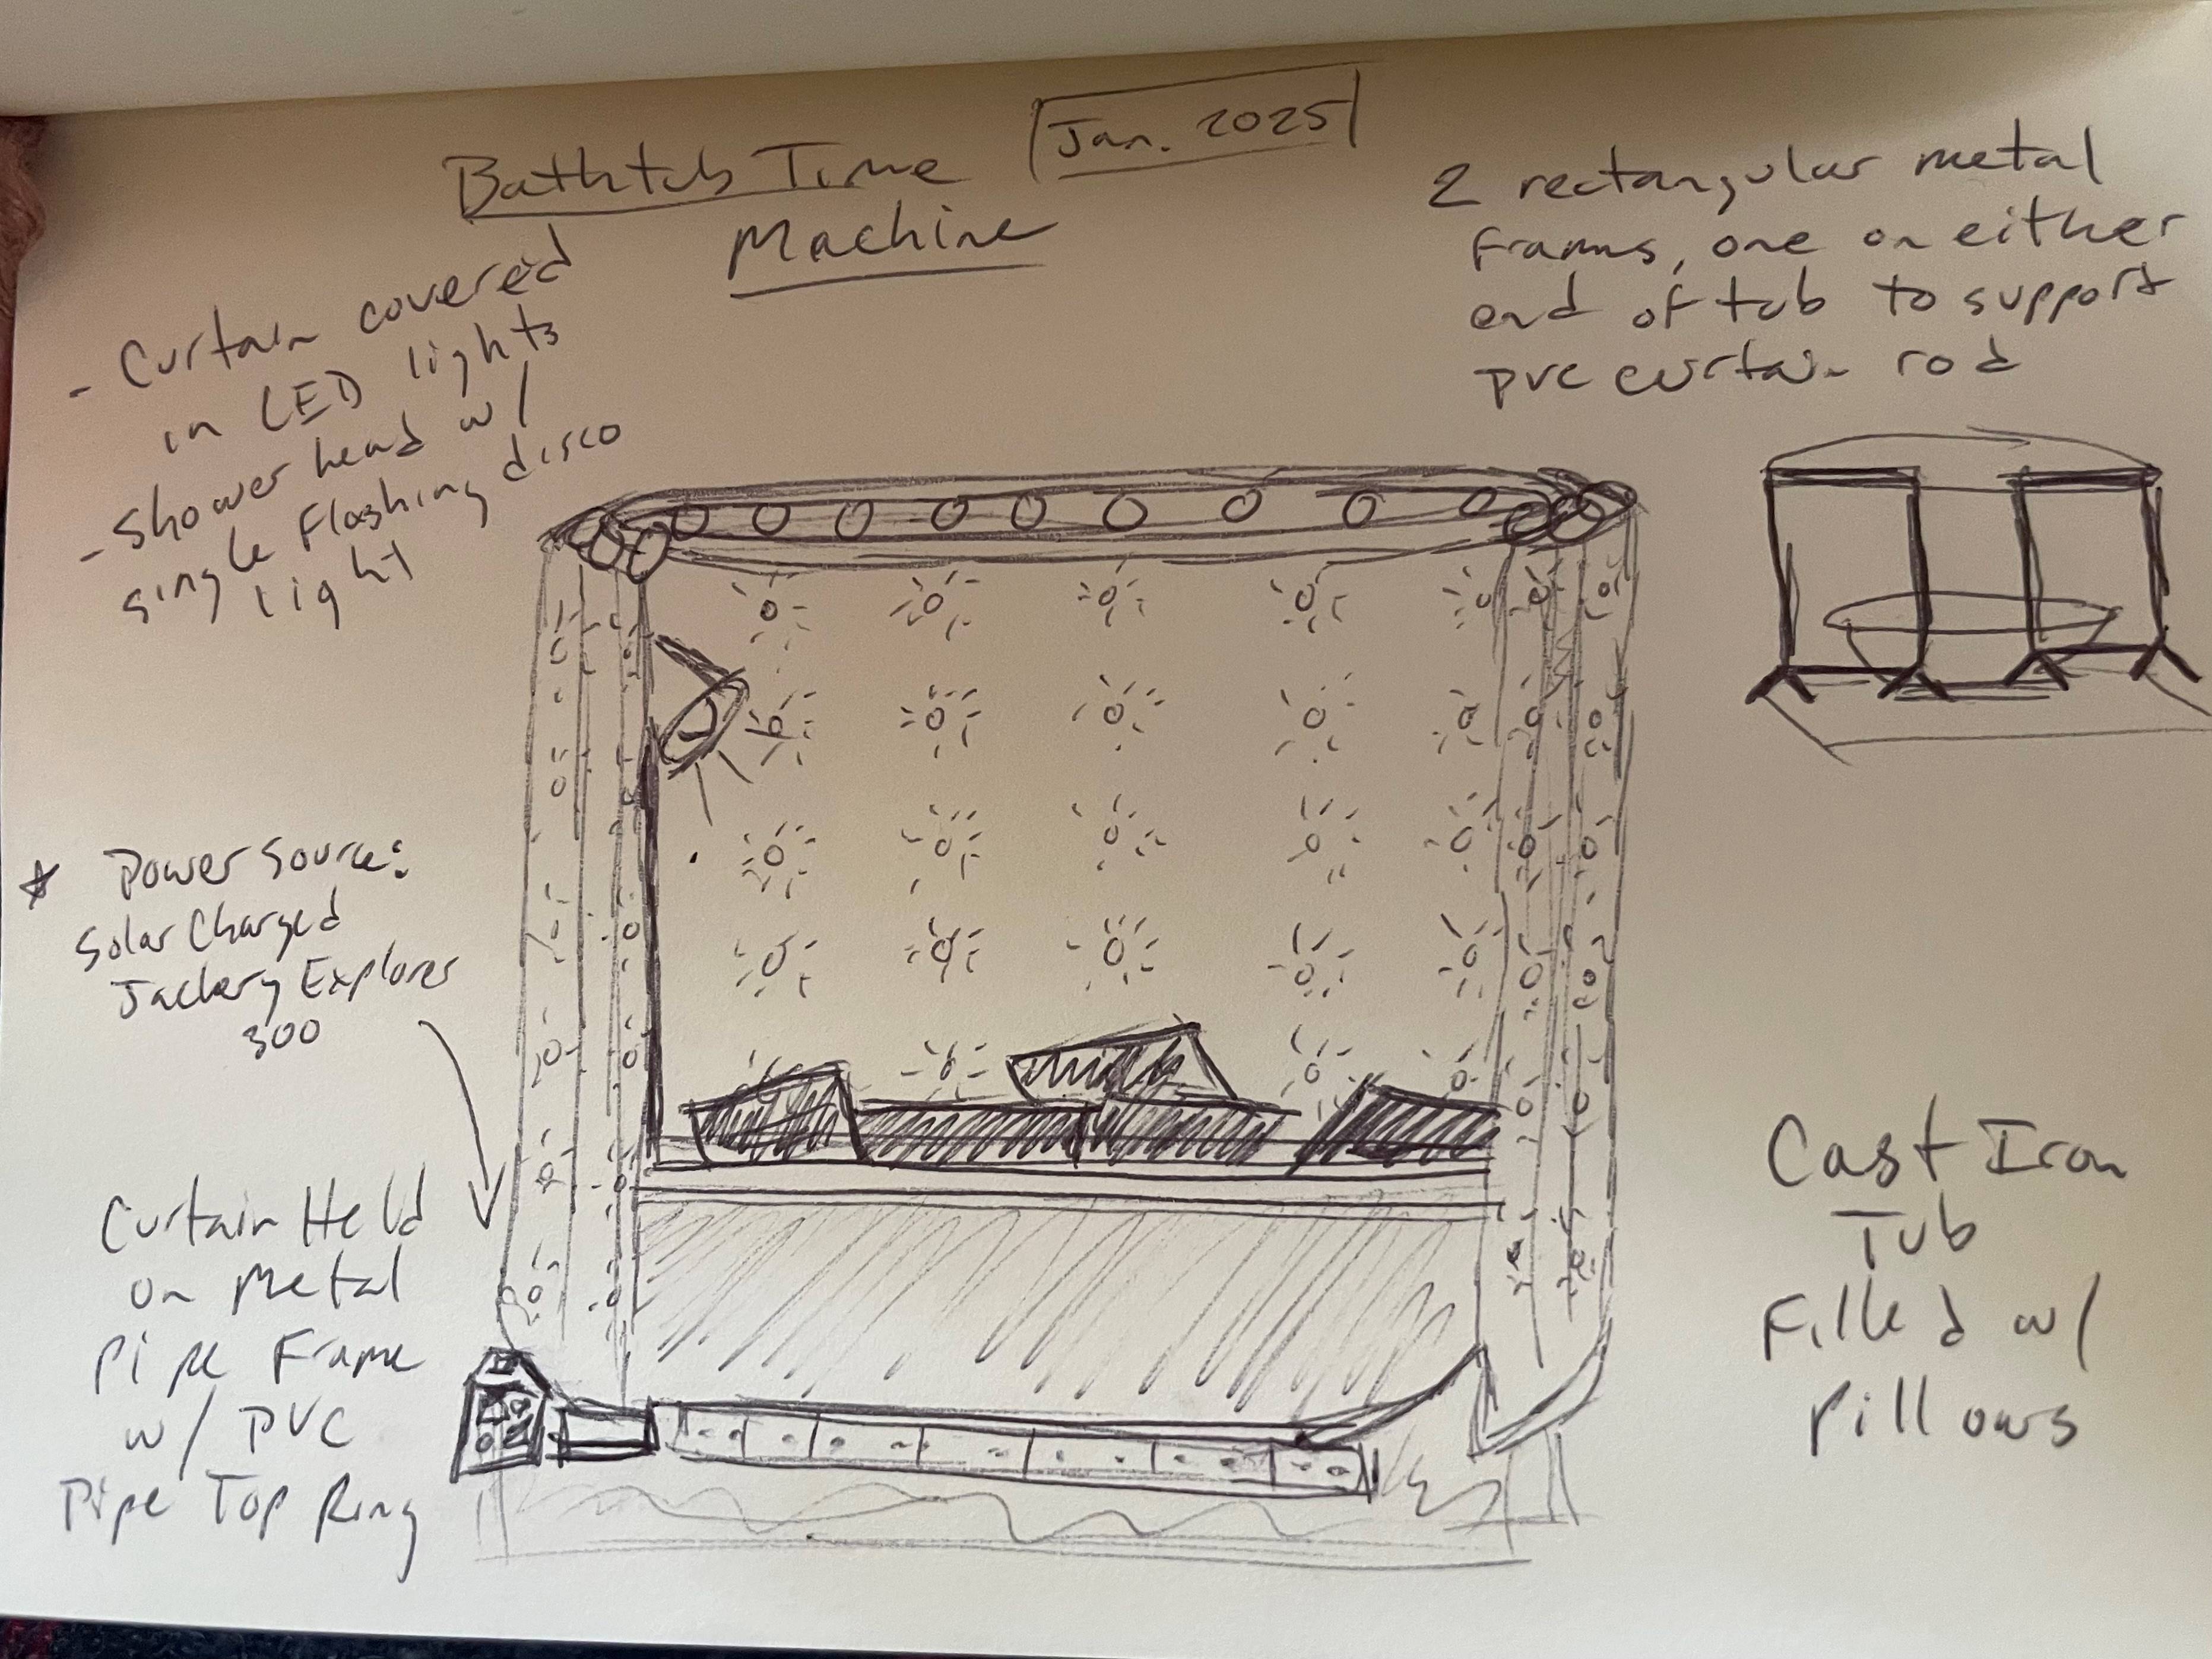 Bathtub Time
Machine
Jan. 2025
- Curtain covered
in LED lights
- Shower head w/
single flashing disco
light
2 rectangular metal
frames, one on either
end of tub to support
PVC curtain rod
* Power Source:
Solar Charged
Jackery Explorer
300
Curtain Held
on Metal
Pipe Frame
w/ PVC
Pipe Top Ring
Cast Iron
Tub
Filled w/
Pillows